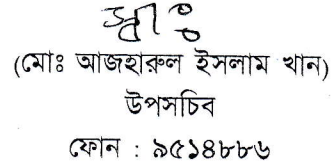 স্বাঃ
(মোঃ আজহারুল ইসলাম খান)
উপসচিব
ফোন : ৯৫১৪৮৮৬